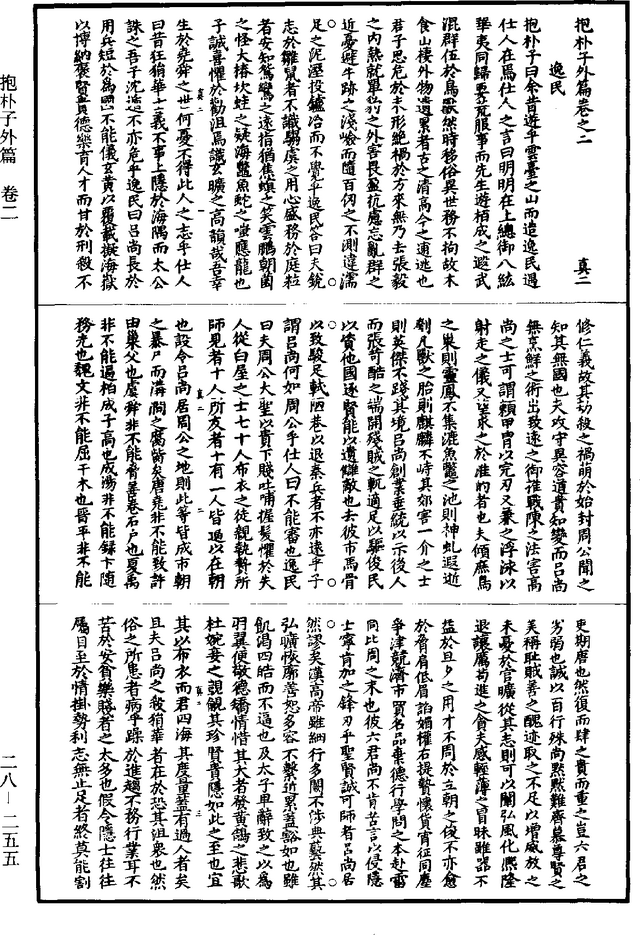 抱朴子外篇卷之二
真二
逸民
抱朴子曰余昔遊乎雲臺之山而造逸民遇
仕人在焉仕人之言曰明明在上總御八紘
華夷同歸要荒服事而先生遊栢成之遐武
混群伍於鳥獸然時移俗異世務不拘故木
食山棲外物遺累者古之清高今之逋逃也
君子思危於未形絶禍於方來無乃去張毅
之內熱就單豹之外害畏盈抗慮忘亂群之
近憂避牛跡之淺嶮而墮百仞之不測違濡
足之泥涇投鑪冶而不覺乎逸民答曰夫銳
志於雛鼠者不識騶虞之用心盛務於庭粒
者安知鴛鸞之遠指猶焦螟之笑雲鵬朝菌
之怪大椿坎蛙之疑海鼈魚蛇之嗤應龍也
子誠喜懼於勸沮焉識玄曠之高韻哉吾幸
生於堯舜之世何憂不得此人之志乎仕人
曰昔狂狷華士義不事上隱於海隅而太公
誅之吾子沈遁不亦危乎逸民曰呂尚長於
用兵短於為國不能儀玄黃以覆載擬海嶽
以博納褒賢貴德樂育人才而甘於刑殺不
修仁義故其劫殺之禍萌於始封周公聞之
知其無國也夫攻守異容道貴知變而呂尚
無烹鮮之術出致遠之御推戰陳之法害高
尚之士可謂賴甲胄以完刃又兼之浮泳以
射走之儀又望求之於准的者也夫傾庶鳥
之巢則靈鳳不集漉魚鼈之池則神虬遐逝
刳凡獸之胎則麒麟不峙其郊害一介之士
則英傑不踐其境呂尚創業垂統以示後人
而張苛酷之端開殘賊之軌適足以驅俊民
以資他國逐賢能以遺讎敵也去彼市馬骨
以致駿足軾陋巷以退秦兵者不亦遠乎子
謂呂尚何如周公乎仕人曰不能審也逸民
曰夫周公大聖以貴下賤吐哺握髮懼於失
人從白屋之士七十人布衣之徒親執贄所
師見者十人所友者十有二人皆不逼以在朝
也設令呂尚居周公之地則此等皆成市朝
之暴尸而溝澗之腐胔矣唐堯非不能致許
由巢父也虞舜非不能脅善卷石戶也夏禹
非不能逼柏成子高也成湯非不能錄卞隨
務光也魏文非不能屈干木也晉平非不能
吏期唐也然復而肆之貴而重之豈六君之
劣弱也誠以百行殊尚默默難齊慕尊賢之
美稱恥賊善之醜迹取之不足以增威放之
未憂於官曠從其志則可以闡弘風化熙隆
退讓厲苟進之貪夫感輕薄之冒昧雖器不
益於旦夕之用才不周於立朝之俊不亦愈
於脅肩低眉諂媚權右提贄懷貨宵征同塵
爭津競濟市買名品棄德行學問之本赴雷
同比周之末也彼六君尚不肯苦言以侵隱
士寧肯加之鋒刃乎聖賢誠可師者呂尚居
然謬矣漢高帝雖細行多闕不涉典藝然其
弘曠恢廓善恕多容不繫近累蓋豁如也雖
飢渴四皓而不逼也及太子卑辭致之以為
羽翼便敬德矯情惜其大者發黃鵠之悲歌
杜婉妾之覬覦其珍賢貴隱如此之至也宜
其以布衣而君四海其度量蓋有過人者矣
且夫呂尚之殺狷華者在於恐其沮衆也然
俗之所患者病乎躁於進趨不務行業耳不
苦於安貧樂賤者之太多也假令隱士往往
屬目至於情掛勢利志無止足者終莫能割
抱朴子外篇　卷二
二八—二五五